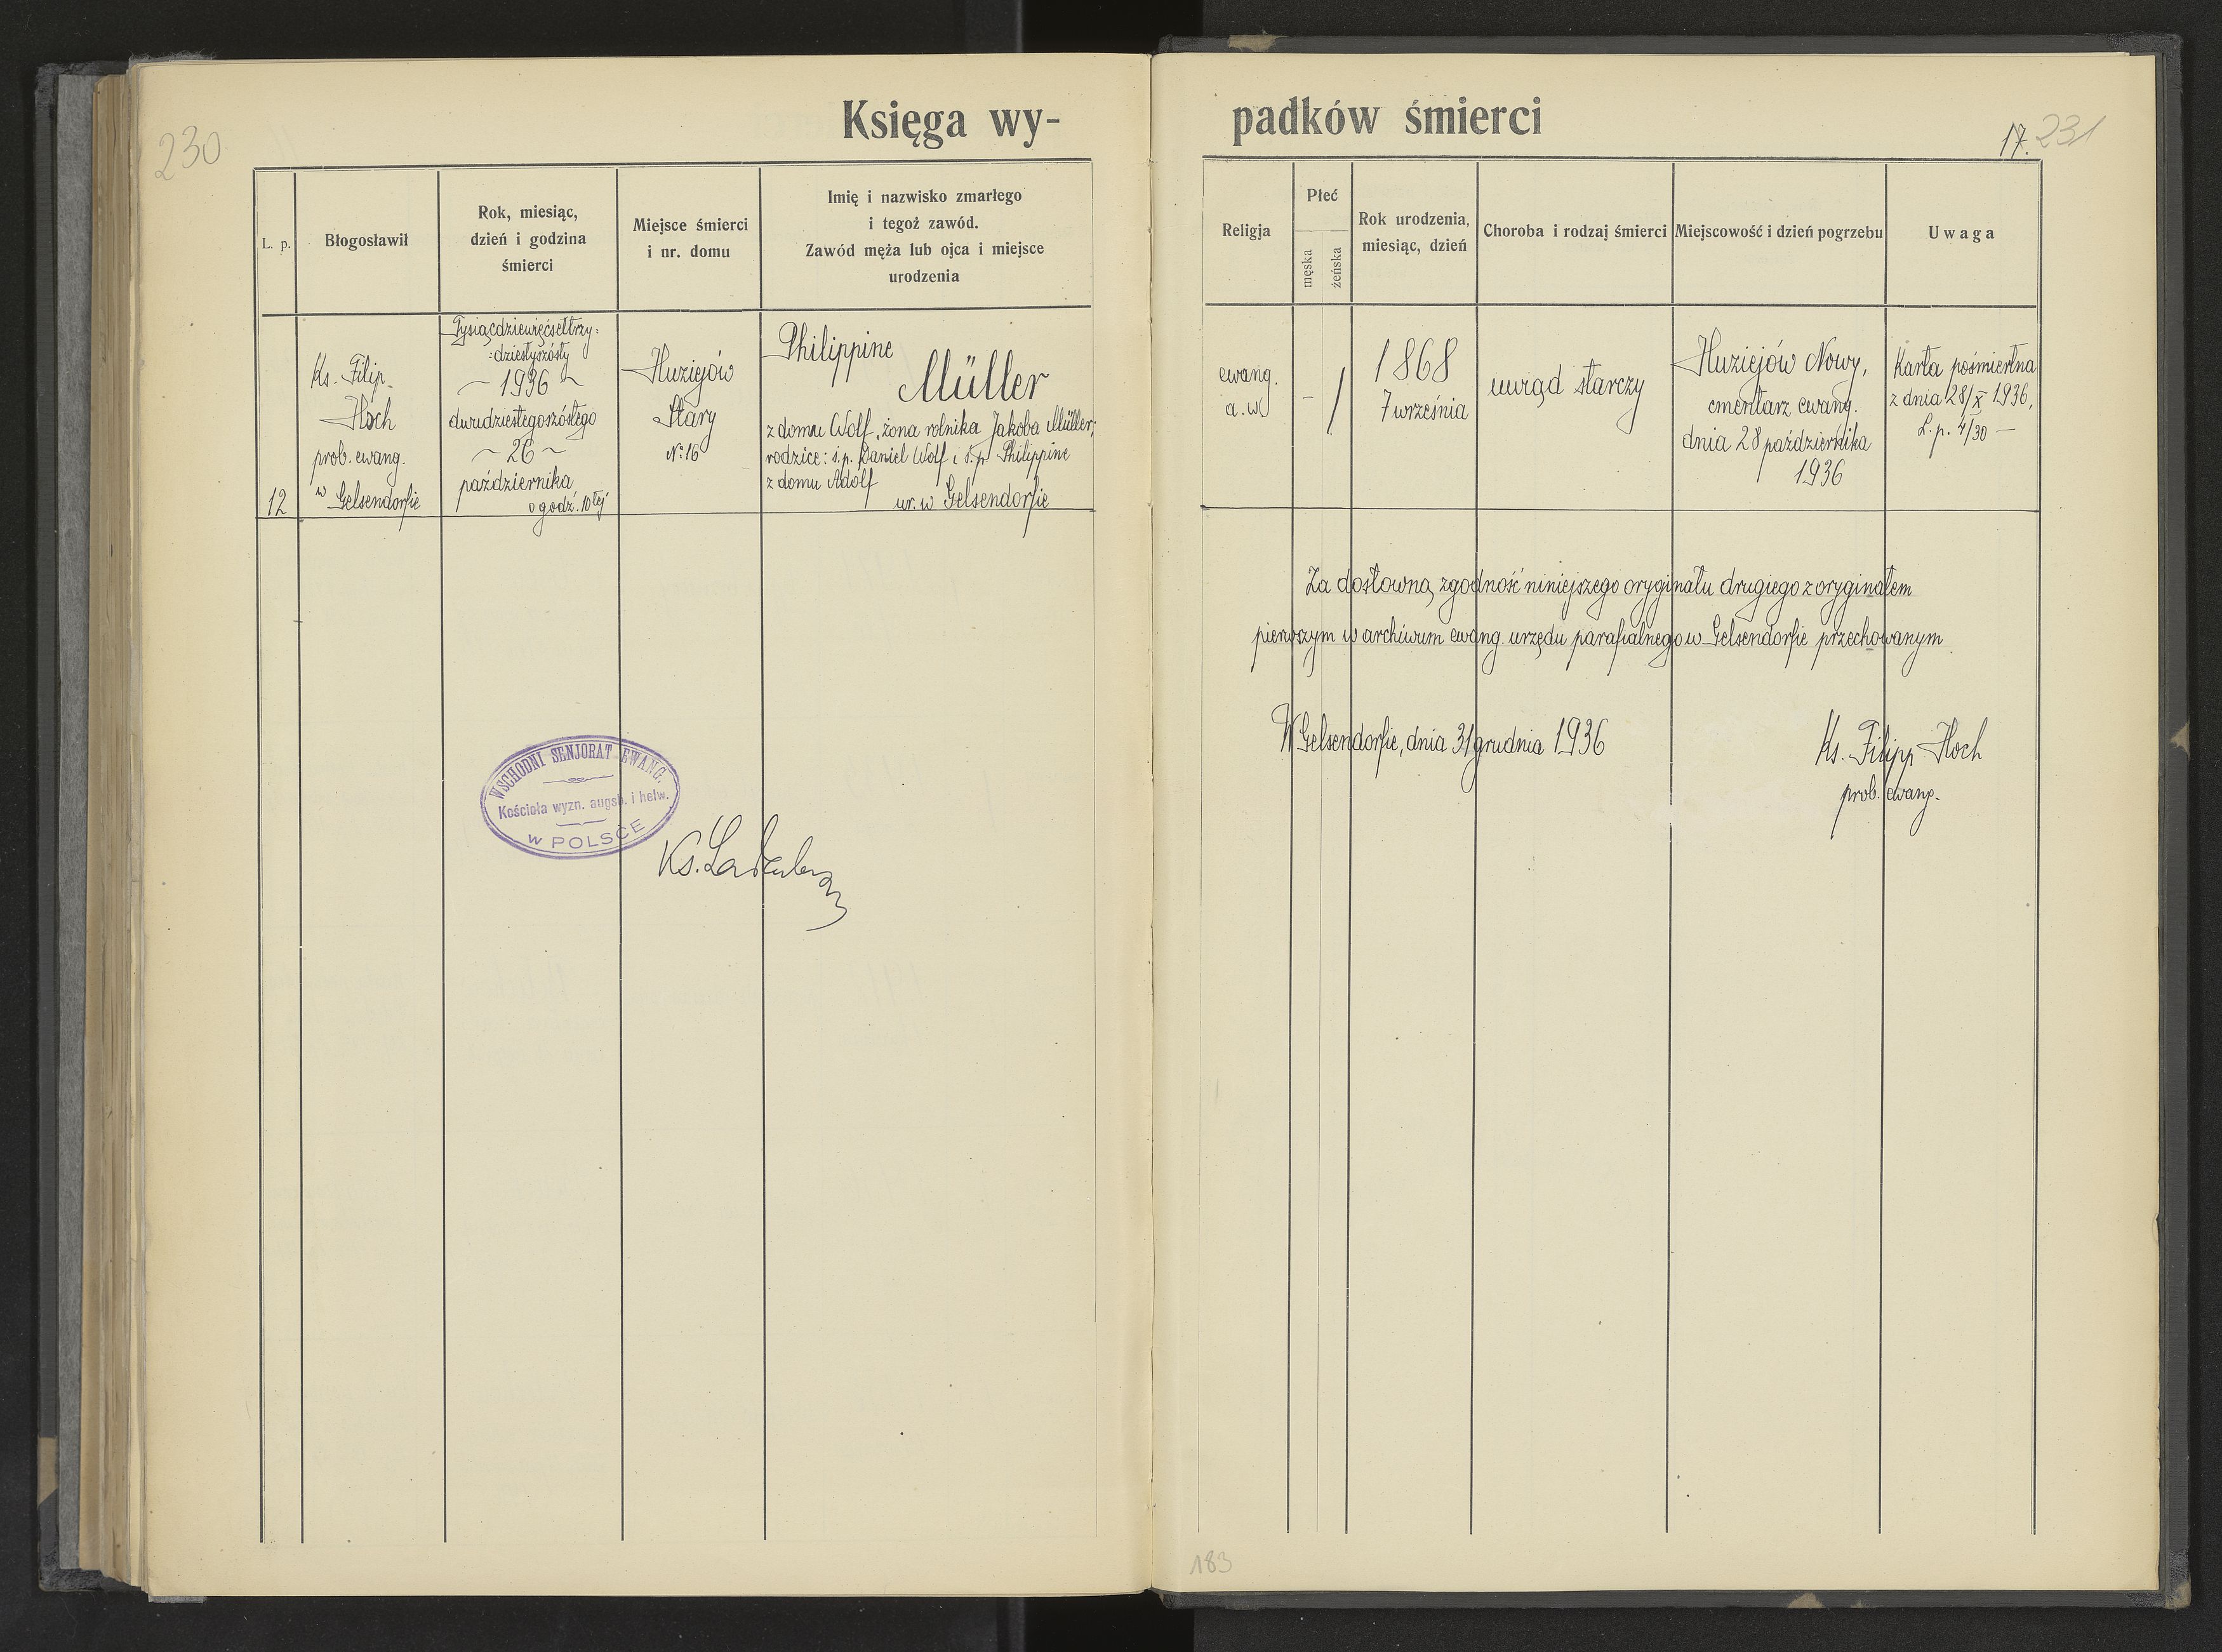 Księga wy-
230
L. p.
Błogosławił
Rok, miesiąc,
dzień i godzina
śmierci
Miejsce śmierci
i nr. domu
Imię i nazwisko zmarłego
i tegoż zawód.
Zawód męża lub ojca i miejsce
urodzenia
12
Ks. Filip
Hoch
prob. ewang.
w Gelsendorfie
Tysiącdziewięćsettrzy=
=dziestyszósty
~ 1936 ~
dwudziestegoszóstego
~ 26 ~
października
o godz. 10tej
Huziejów
Stary
No 16
Philippine
Müller
z domu Wolf, żona rolnika Jakoba Müller;
rodzice: ś.p. Daniel Wolf i ś.p. Philippine
z domu Adolf
ur. w Gelsendorfie
WSCHODNI SENJORAT EWANG.
Kościoła wyzn. augsb. i helw.
w POLSCE
Ks.
padków śmierci
17. 231
Religja
Płeć
męska
żeńska
Rok urodzenia,
miesiąc, dzień
Choroba i rodzaj śmierci
Miejscowość i dzień pogrzebu
Uwaga
ewang.
a. w.
-
/
1868
7 września
uwiąd starczy
Huziejów Nowy,
cmentarz ewang.
dnia 28 października
1936
Karta pośmiertna
z dnia 28/X 1936,
L. p. 4/30 —
Za dosłowną zgodność niniejszego oryginału drugiego z oryginałem
pierwszym w archiwum ewang. urzędu parafialnego w Gelsendorfie przechowanym.
W Gelsendorfie, dnia 31 grudnia 1936
Ks. Filipp Hoch
prob. ewang.
183